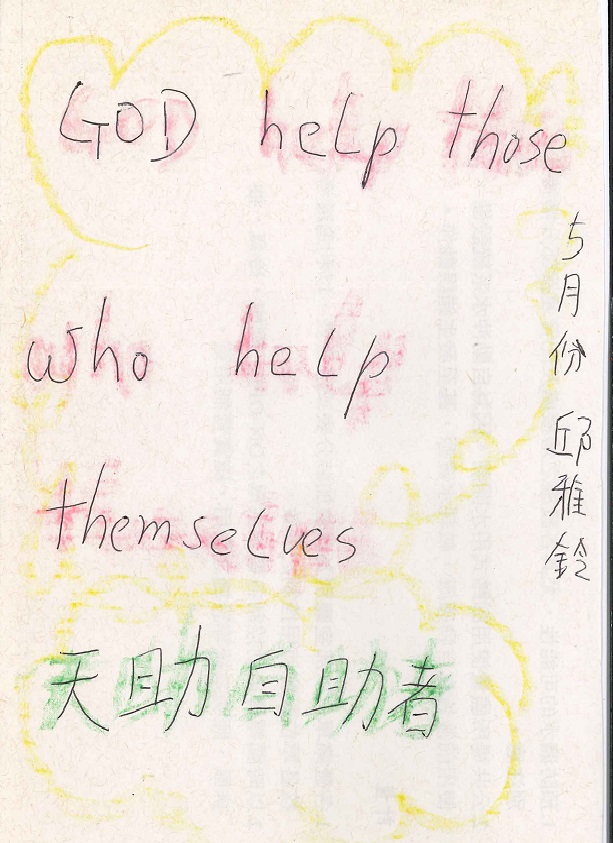 GOD help those
who help
themselves
天助自助者
5月份 邱雅鈴